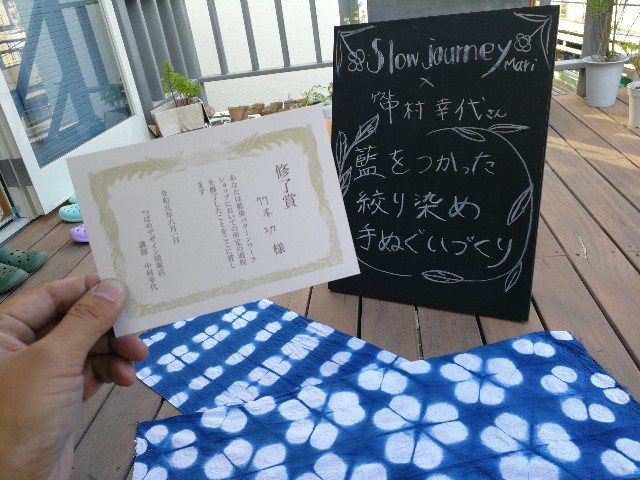 修了賞
竹本 功 様
あなたは藍染パターンワーク
ショップにおいての所定の過程
を修了したことをここに賞し
ます
令和元年六月一日
つばめデザイン図案店
講師 中村幸代
Slow journey
Mari
×
中村 幸代さん
藍をつかった
絞り染め
手ぬぐいづくり